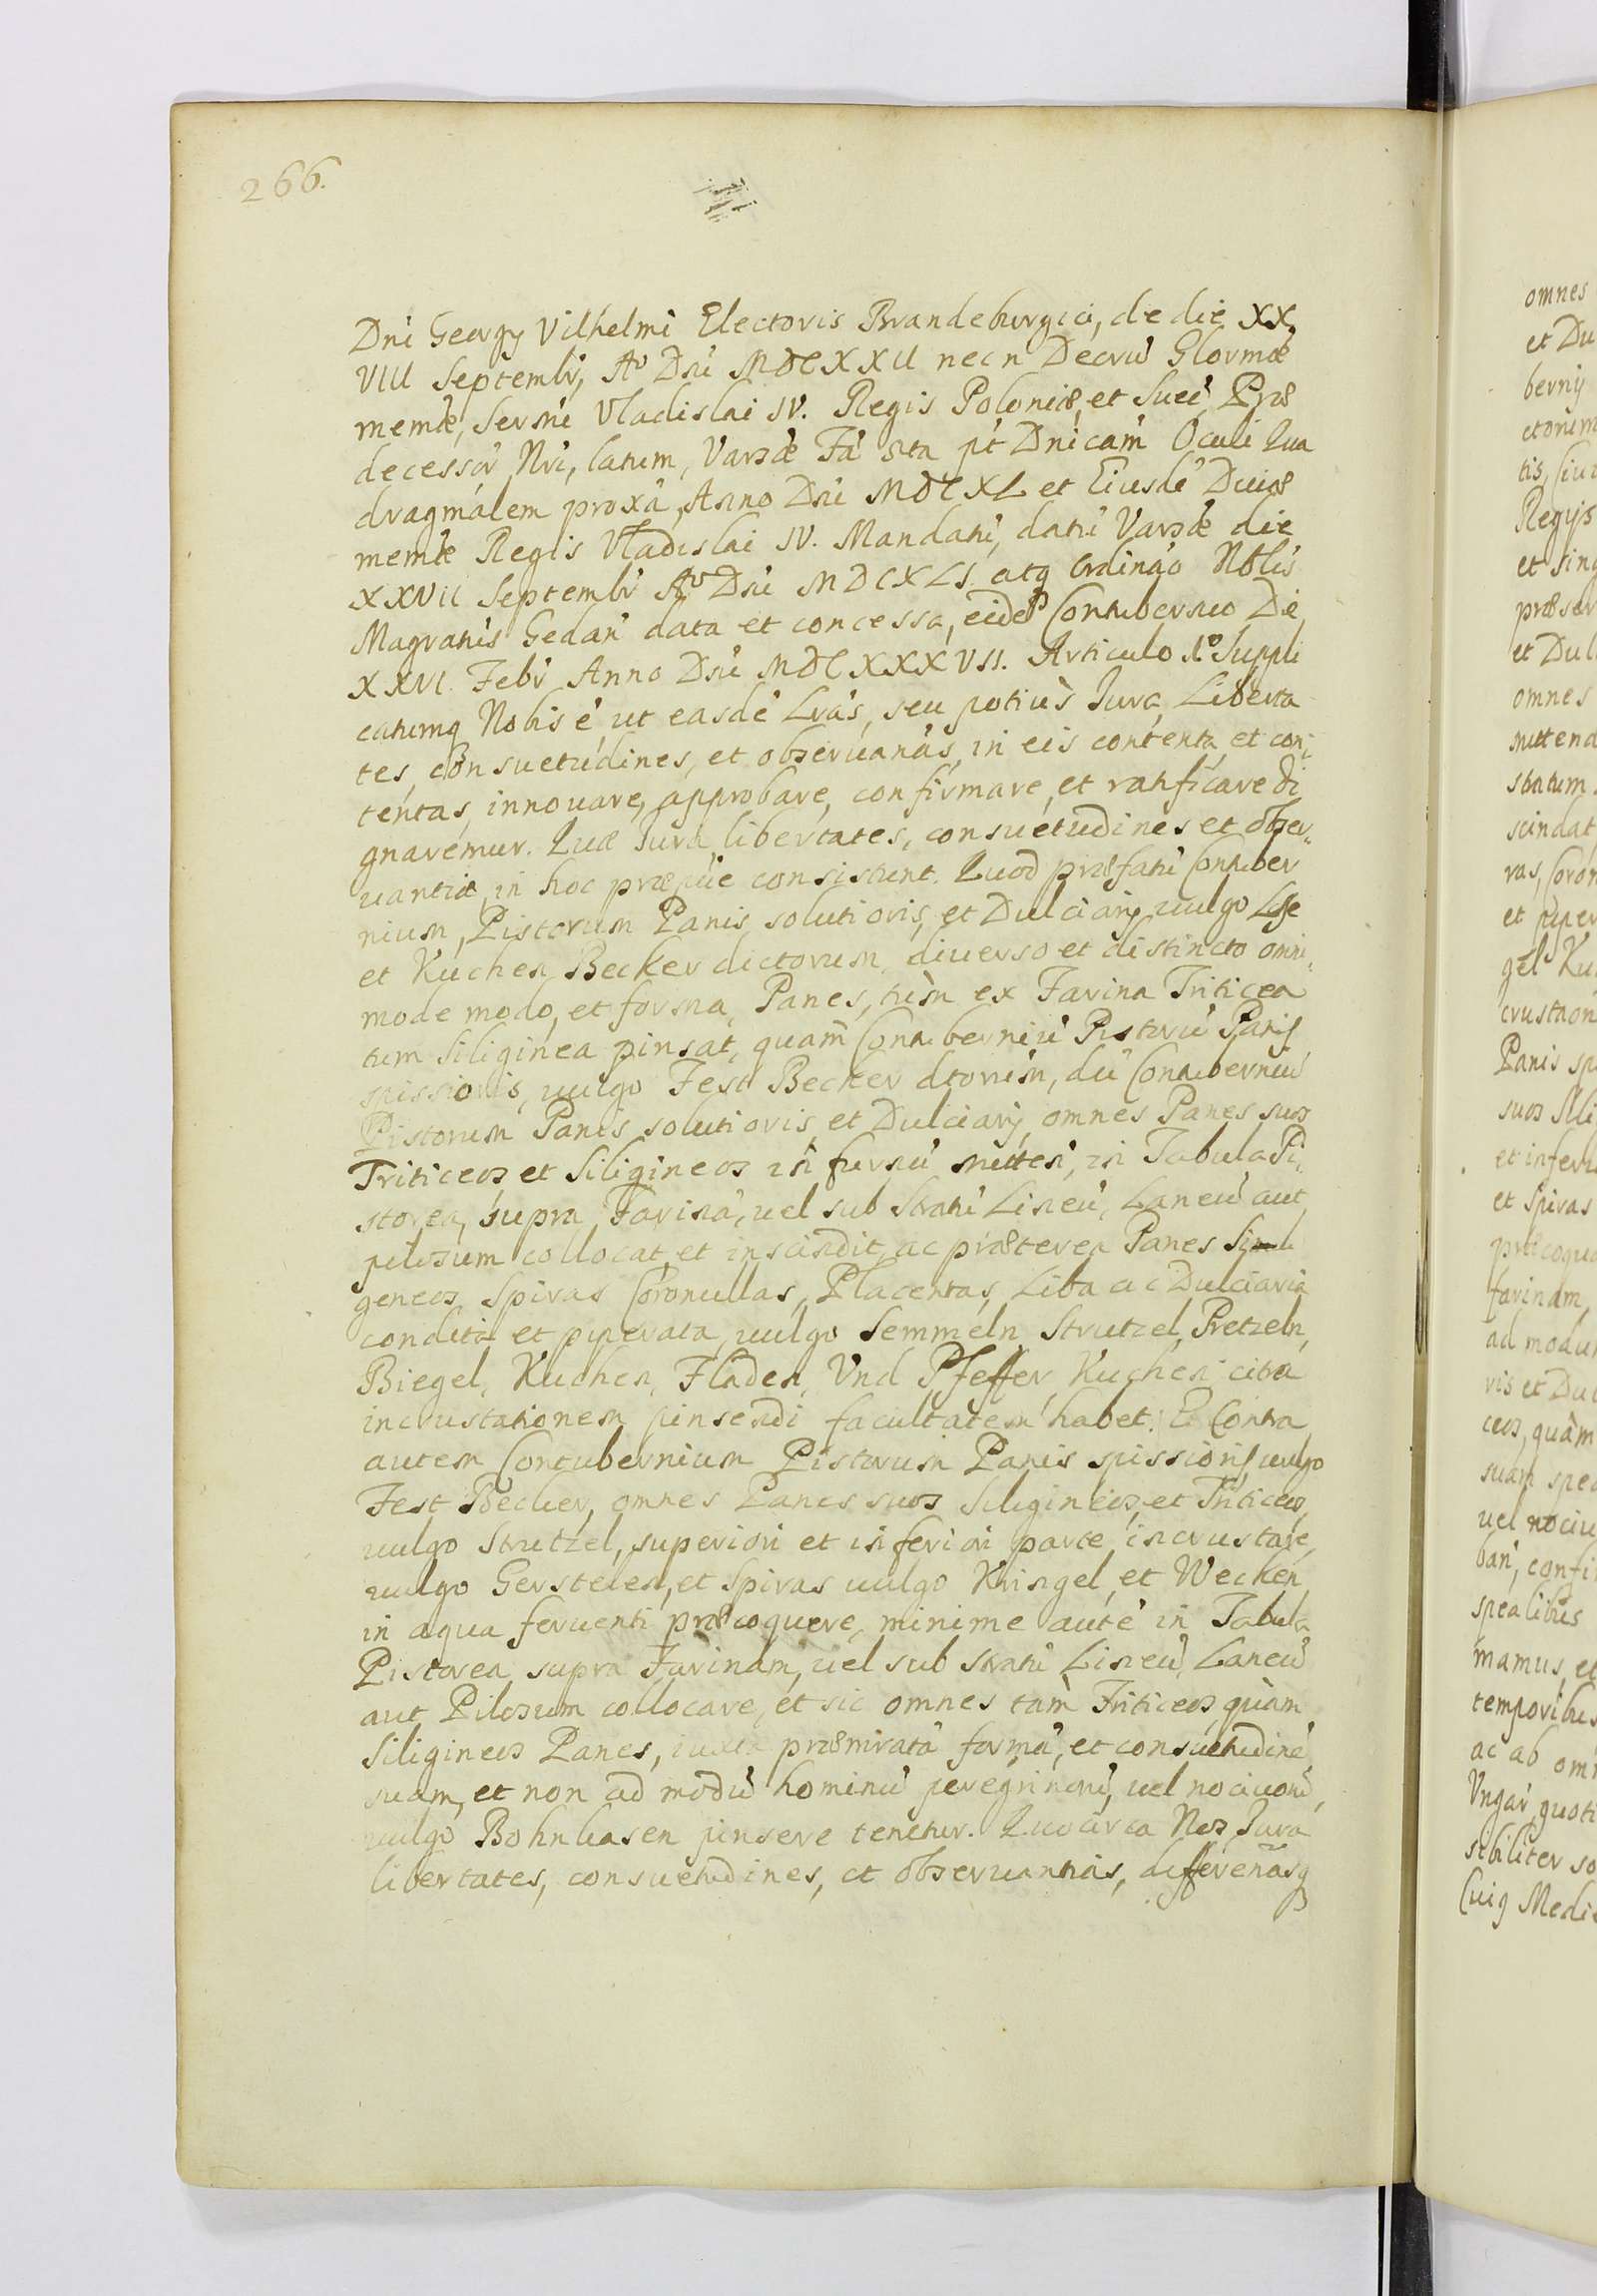 266.
Dni Georgy Vilhelmi Electoris Brandeburgici, de die XX,
VIII Septembr, Ao Dni MDCXXII necn Decru Glormæ
memæ, Sermi Vladislai IV. Regis Poloniæ, et Sueci, Præ
decessor Nri, latum, Varsæ Fa 5ta pt Dnicam Oculi Qua
dragmalem proxa, Anno Dni MDCXL et Eiusde Divæ
memæ Regis Vladislai IV. Mandati, dati Varsæ die
XXVII Septembr Ao Dni MDCXLI. atq Ordinao Nblis
Magratus Gedan data et concessa, eide Contubernio Die
XXVI. Febr Anno Dni MDCXXXVII. Articulo 1o Suppli
catumq Nobis é, ut easde Lras, seu potius Jura, Liberta
tes, consuetudines, et obseruanas, in eis contenta, et con,
tentas, innouare, approbare, confirmare, et ratificare di
gnaremur. Quæ Jura, libertates, consuetudines et obser,
uantiæ, in hoc præpue consistunt. Quod præfatu Contuber
nium, Pistorum Panis solutioris, et Dulciarij uulgo Lose
et Kuchen Becker dictorum, diuerso et distincto omni,
mode modo, et forma, Panes, tùm ex Farina Triticea
tum Siliginea pinsat, quam Contuberniu Pistoru Panis
spissioris, uulgo Fest Becker dtorum, du Contuberniu
Pistorum Panis solutioris, et Dulciarij, omnes Panes suos
Triticeos et Siligineos in furnu mitten, in Tabula Pi,
storea, supra Farina, uel sub Stratu Lineu, Laneu aut
pilosum collocat, et inscindit, ac præterea Panes Sili
geneos, Spiras Coronullas, Placentas, Liba ac Dulciaria
condita et piperata, uulgo Semmeln Strutzel, Pretzeln,
Biegel, Kuchen, Fladen, Vnd Pfeffer Kuchen citra
incrustationem pinsendi facultatem habet. E Contra
autem Contubernium Pistorum Panis spissioris, uulgo
Fest Becker, omnes Panes suos Siligineos, et Triticeos
uulgo Strutzel, superiori et inferiori parte incrustare,
uulgo Gerstelen, et Spiras uulgo Kringel, et Wecken
in aqua feruenti præcoquere, minime aute in Tabula
Pistorea supra Farinam, uel sub Stratu Lineu, Laneu
aut Pilosum collocare, et sic omnes tam Triticeos, quam
Siligineos Panes, iuxta prænirata forma, et consuetudine
suam, et non ad modu hominu peregrinoru, uel nociuoru,
uulgo Bohnhasen pinsere tenetur. Quocirca Nos Jura
libertates, consuetudines, et obseruantias, differenasq
omnes
et Du
bernij
ctorum
Regijs
et sing
et Dul
omnes
mittend
statum
scindat
et piper
Panis sp
suos Sili
et Spiras
farinam,
ad modu
ris et Dul
ceos, quàm
suam spe
uel nociu
mamus, et
temporibus
ac ab om
Vngar, quoti
stbiliter so
Cuiq Medi